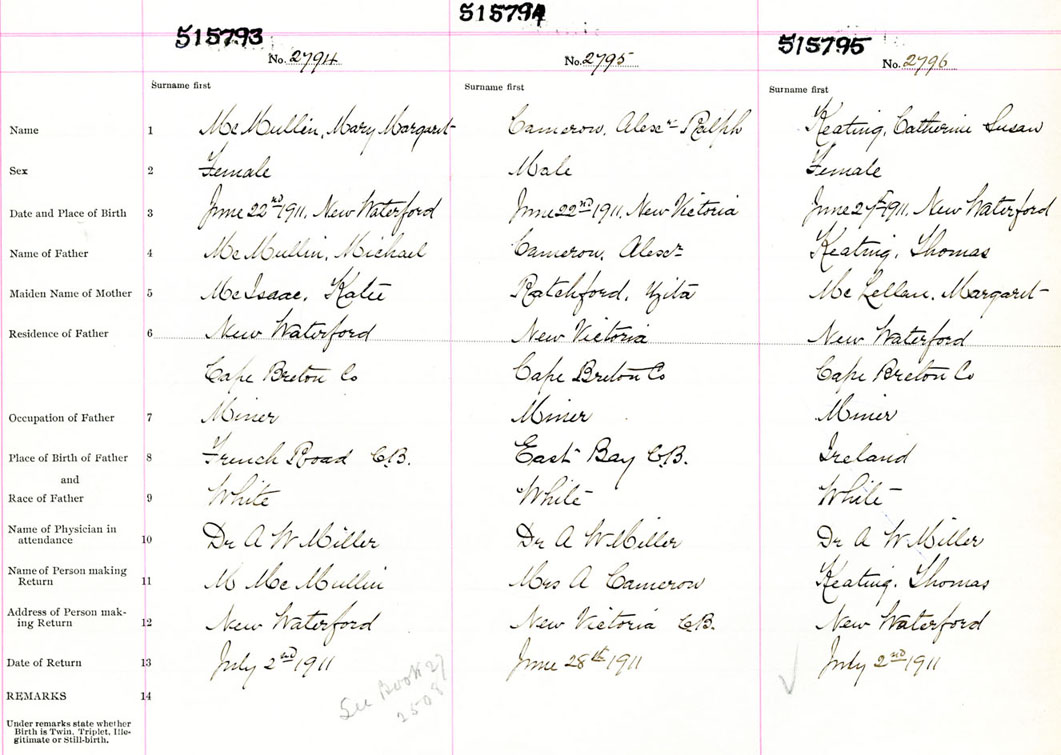 515793 515794 515795
No. 2794 No. 2795 No. 2796
Surname first Surname first Surname first
Name 1 McMullin, Mary Margaret Cameron, Alexr Ralph Keating, Catherine Susan
Sex 2 Female Male Female
Date and Place of Birth 3 June 22nd 1911, New Waterford June 22nd 1911, New Victoria June 27th 1911, New Waterford
Name of Father 4 McMullin, Michael Cameron, Alexr Keating, Thomas
Maiden Name of Mother 5 McIsaac, Katie Ratchford, McLellan, Margaret
Residence of Father 6 New Waterford New Victoria New Waterford
Cape Breton Co Cape Breton Co Cape Breton Co
Occupation of Father 7 Miner Miner Miner
Place of Birth of Father 8 French Road C.B. East Bay C.B. Ireland
and
Race of Father 9 White White White
Name of Physician in
attendance 10 Dr A W Miller Dr A W Miller Dr A W Miller
Name of Person making
Return 11 M McMullin Mrs A Cameron Keating, Thomas
Address of Person mak-
ing Return 12 New Waterford New Victoria C.B. New Waterford
Date of Return 13 July 2nd 1911 June 28th 1911 July 2nd 1911
REMARKS 14 See Book 27
2508
Under remarks state whether
Birth is Twin, Triplet, Ille-
gitimate or Still-birth.